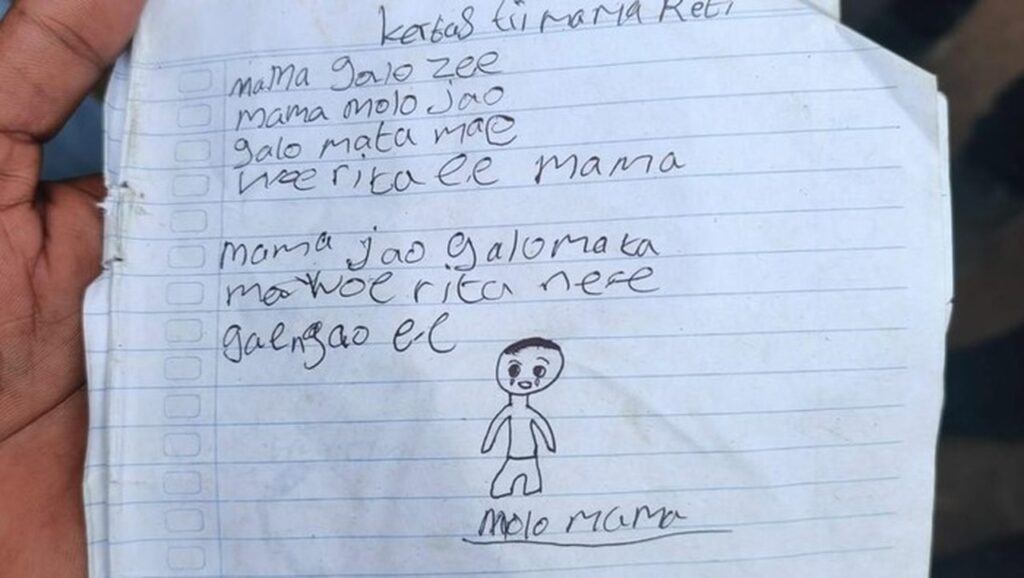 kertas tii mama Reti
mama galo zee
mama molo jao
galo mata mae
woe rita ee mama
mama jao galo mata
mae woe rita ne-e
gae ngao e-e
molo mama